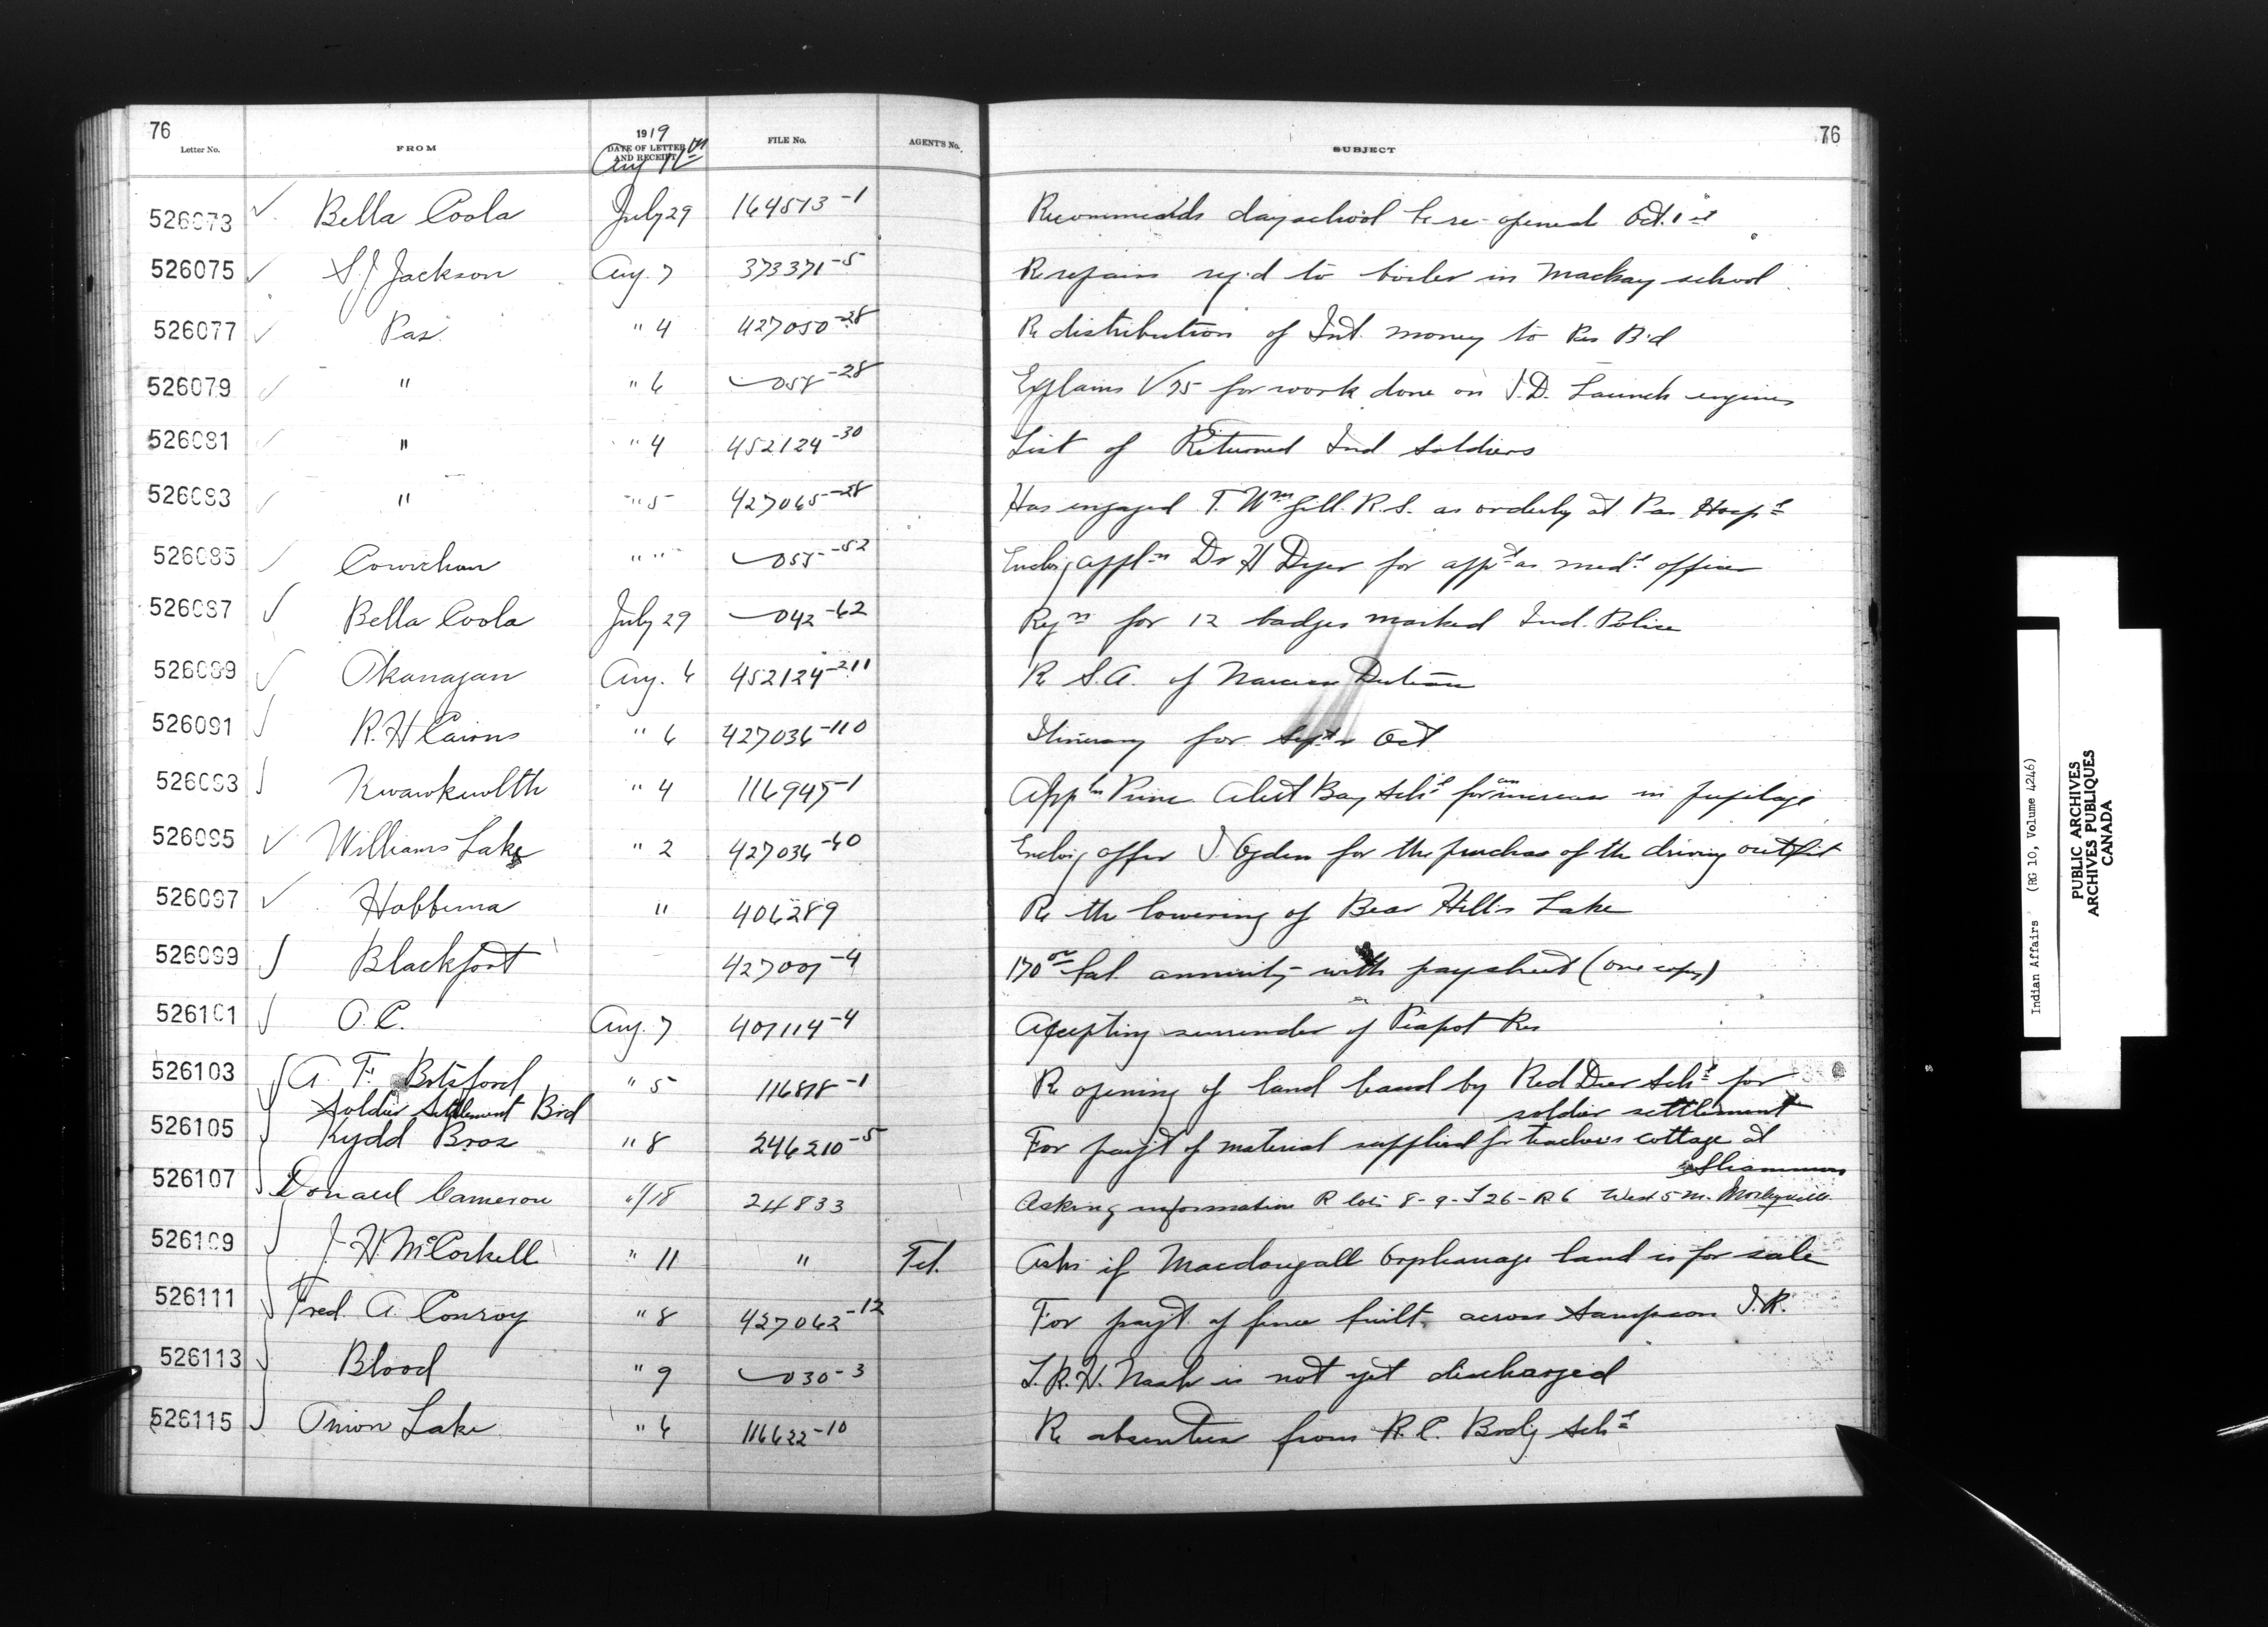 76
76
Letter No.
FROM
1919
DATE OF LETTER AND RECEIPT
Aug
FILE No.
AGENT'S No.
SUBJECT
526073 Bella Coola July 29 164513-1 Recommends day school be re-opened Oct. 1st
526075 S.J. Jackson Aug. 7 373371-5 Re repairs rq'd to boiler in Mackay school
526077 Pas " 4 427050-28 Re distribution of Int. money to Pas B'd
526079 " " 6 058-28 Explains V 75 for work done on I.D. Launch engines
526081 " " 4 452124-30 List of Returned Ind Soldiers
526083 " " 5 427065-28 Has engaged T. Wm Gill. R.S. as orderly at Pas Hospl
526085 Cowichan " " 055-52 Enclos'g appln Dr H Dyer for appt as medl officer
526087 Bella Coola July 29 042-62 Rqn for 12 badges marked Ind. Police
526089 Okanagan Aug. 6 452124-211 Re S.A. of
526091 R.H Cairns " 6 427036-110 Itinerary for Sept & Oct
526093 Kwawkewlth " 4 116945-1 Appln Princ. Alert Bay Schl for an increase in pupilage
526095 Williams Lake " 2 427036-60 Enclos'g offer J. Ogden for the purchase of the driving outfit
526097 Hobbema " 406289 Re the lowering of Bear Hills Lake
526099 Blackfoot 427007-4 170 00 bal annuity with paysheet (one copy)
526101 O.C. Aug. 7 401114-4 Accepting surrender of Piapot Res
526103 A. F. Botsford " 5 116818-1 Re opening of land leased by Red Deer Schl for
Soldier Settlement Brd soldier settlement
526105 Kydd Bros " 8 246210-5 For paym't of material supplied for teacher's cottage at
Shammon
526107 Donald Cameron " 18 24833 Asking information R lots 8-9-T26-R6 West 5 M. Morleyville
526109 J. H. McCorkell " 11 " Tel. Asks if Macdougall Orphanage land is for sale
526111 Fred. A. Conroy " 8 427062-12 For paym't of fence built across Sampson I.R.
526113 Blood " 9 030-3 T.R.H. Nash is not yet discharged
526115 Onion Lake " 6 116622-10 Re absentees from R.C. Brd'g Schl
Indian Affairs (RG 10, Volume 4246)
PUBLIC ARCHIVES
ARCHIVES PUBLIQUES
CANADA